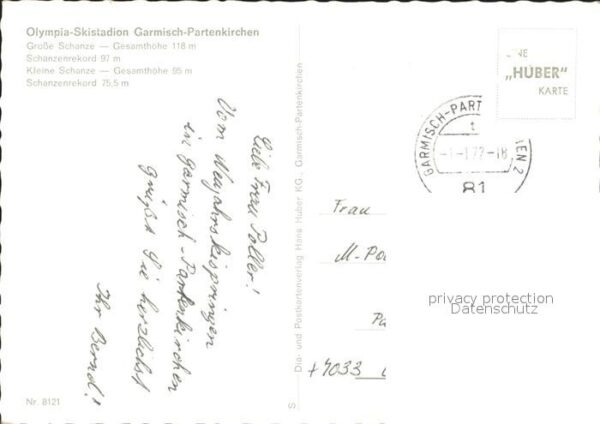 Olympia-Skistadion Garmisch-Partenkirchen
Große Schanze — Gesamthöhe 118 m
Schanzenrekord 97 m
Kleine Schanze — Gesamthöhe 95 m
Schanzenrekord 75,5 m
Liebe Frau Poller!
Vom Neujahrskispringen
in Garmisch-Partenkirchen
grüßt Sie herzlichst
Ihr Bernd!
Nr. 8121
S
Dia- und Postkartenverlag Hans Huber KG., Garmisch-Partenkirchen
INE
„HUBER"
KARTE
GARMISCH-PART
EN 2
-1-1.77-18
81
Frau
M-Po
Pa
+7033
privacy protection
Datenschutz